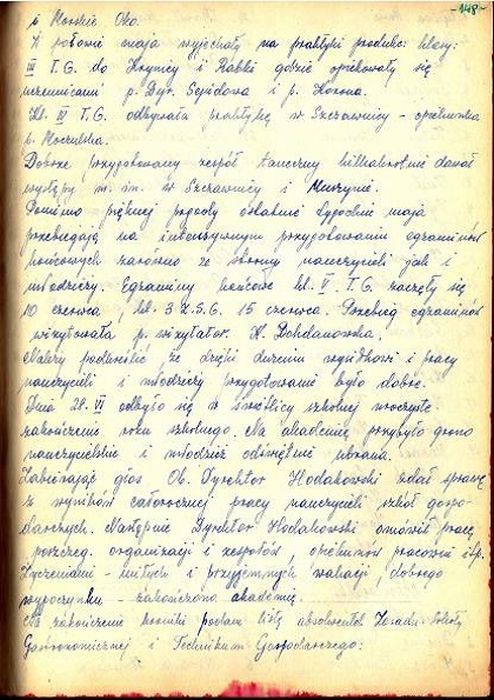 -148-
i Morskie Oko.
W połowie maja wyjechały na praktyki produkc. klasy:
III T.G. do Krynicy i Rabki gdzie opiekowały się
uczennicami p. Dyr. i p. Korona.
Kl. IV T.G. odbywała praktykę w Szczawnicy - opiekunka
p. Moczulska.
Dobrze przygotowany zespół taneczny kilkakrotnie dawał
występy m. in. w Szczawnicy i Muszynie.
Pomimo pięknej pogody ostatnie tygodnie maja
przebiegają na intensywnym przygotowaniu egzaminów
końcowych zarówno ze strony nauczycieli jak i
młodzieży. Egzaminy końcowe kl. V T.G. zaczęły się
10 czerwca, kl. 3 Z.S.G. 15 czerwca. Przebieg egzaminów
wizytowała p. wizytator. H. Bohdanowska.
Należy podkreślić że dzięki dużemu wysiłkowi i pracy
nauczycieli i młodzieży przygotowanie było dobre.
Dnia 28. VI odbyło się w świetlicy szkolnej uroczyste
zakończenie roku szkolnego. Na akademię przybyło grono
nauczycielskie i młodzież odświętnie ubrana.
Zabierając głos Ob. Dyrektor Hodakowski zdał sprawę
z wyników całorocznej pracy nauczycieli szkół gospo-
darczych. Następnie Dyrektor Hodakowski omówił pracę
poszczeg. organizacji i zespołów, opiekunów pracowni itp.
Życzeniami - miłych i przyjemnych wakacji, dobrego
wypoczynku - zakończono akademię.
Na zakończenie kroniki podam listę absolwentek Zasadn. Szkoły
Gastronomicznej i Technikum Gospodarczego: